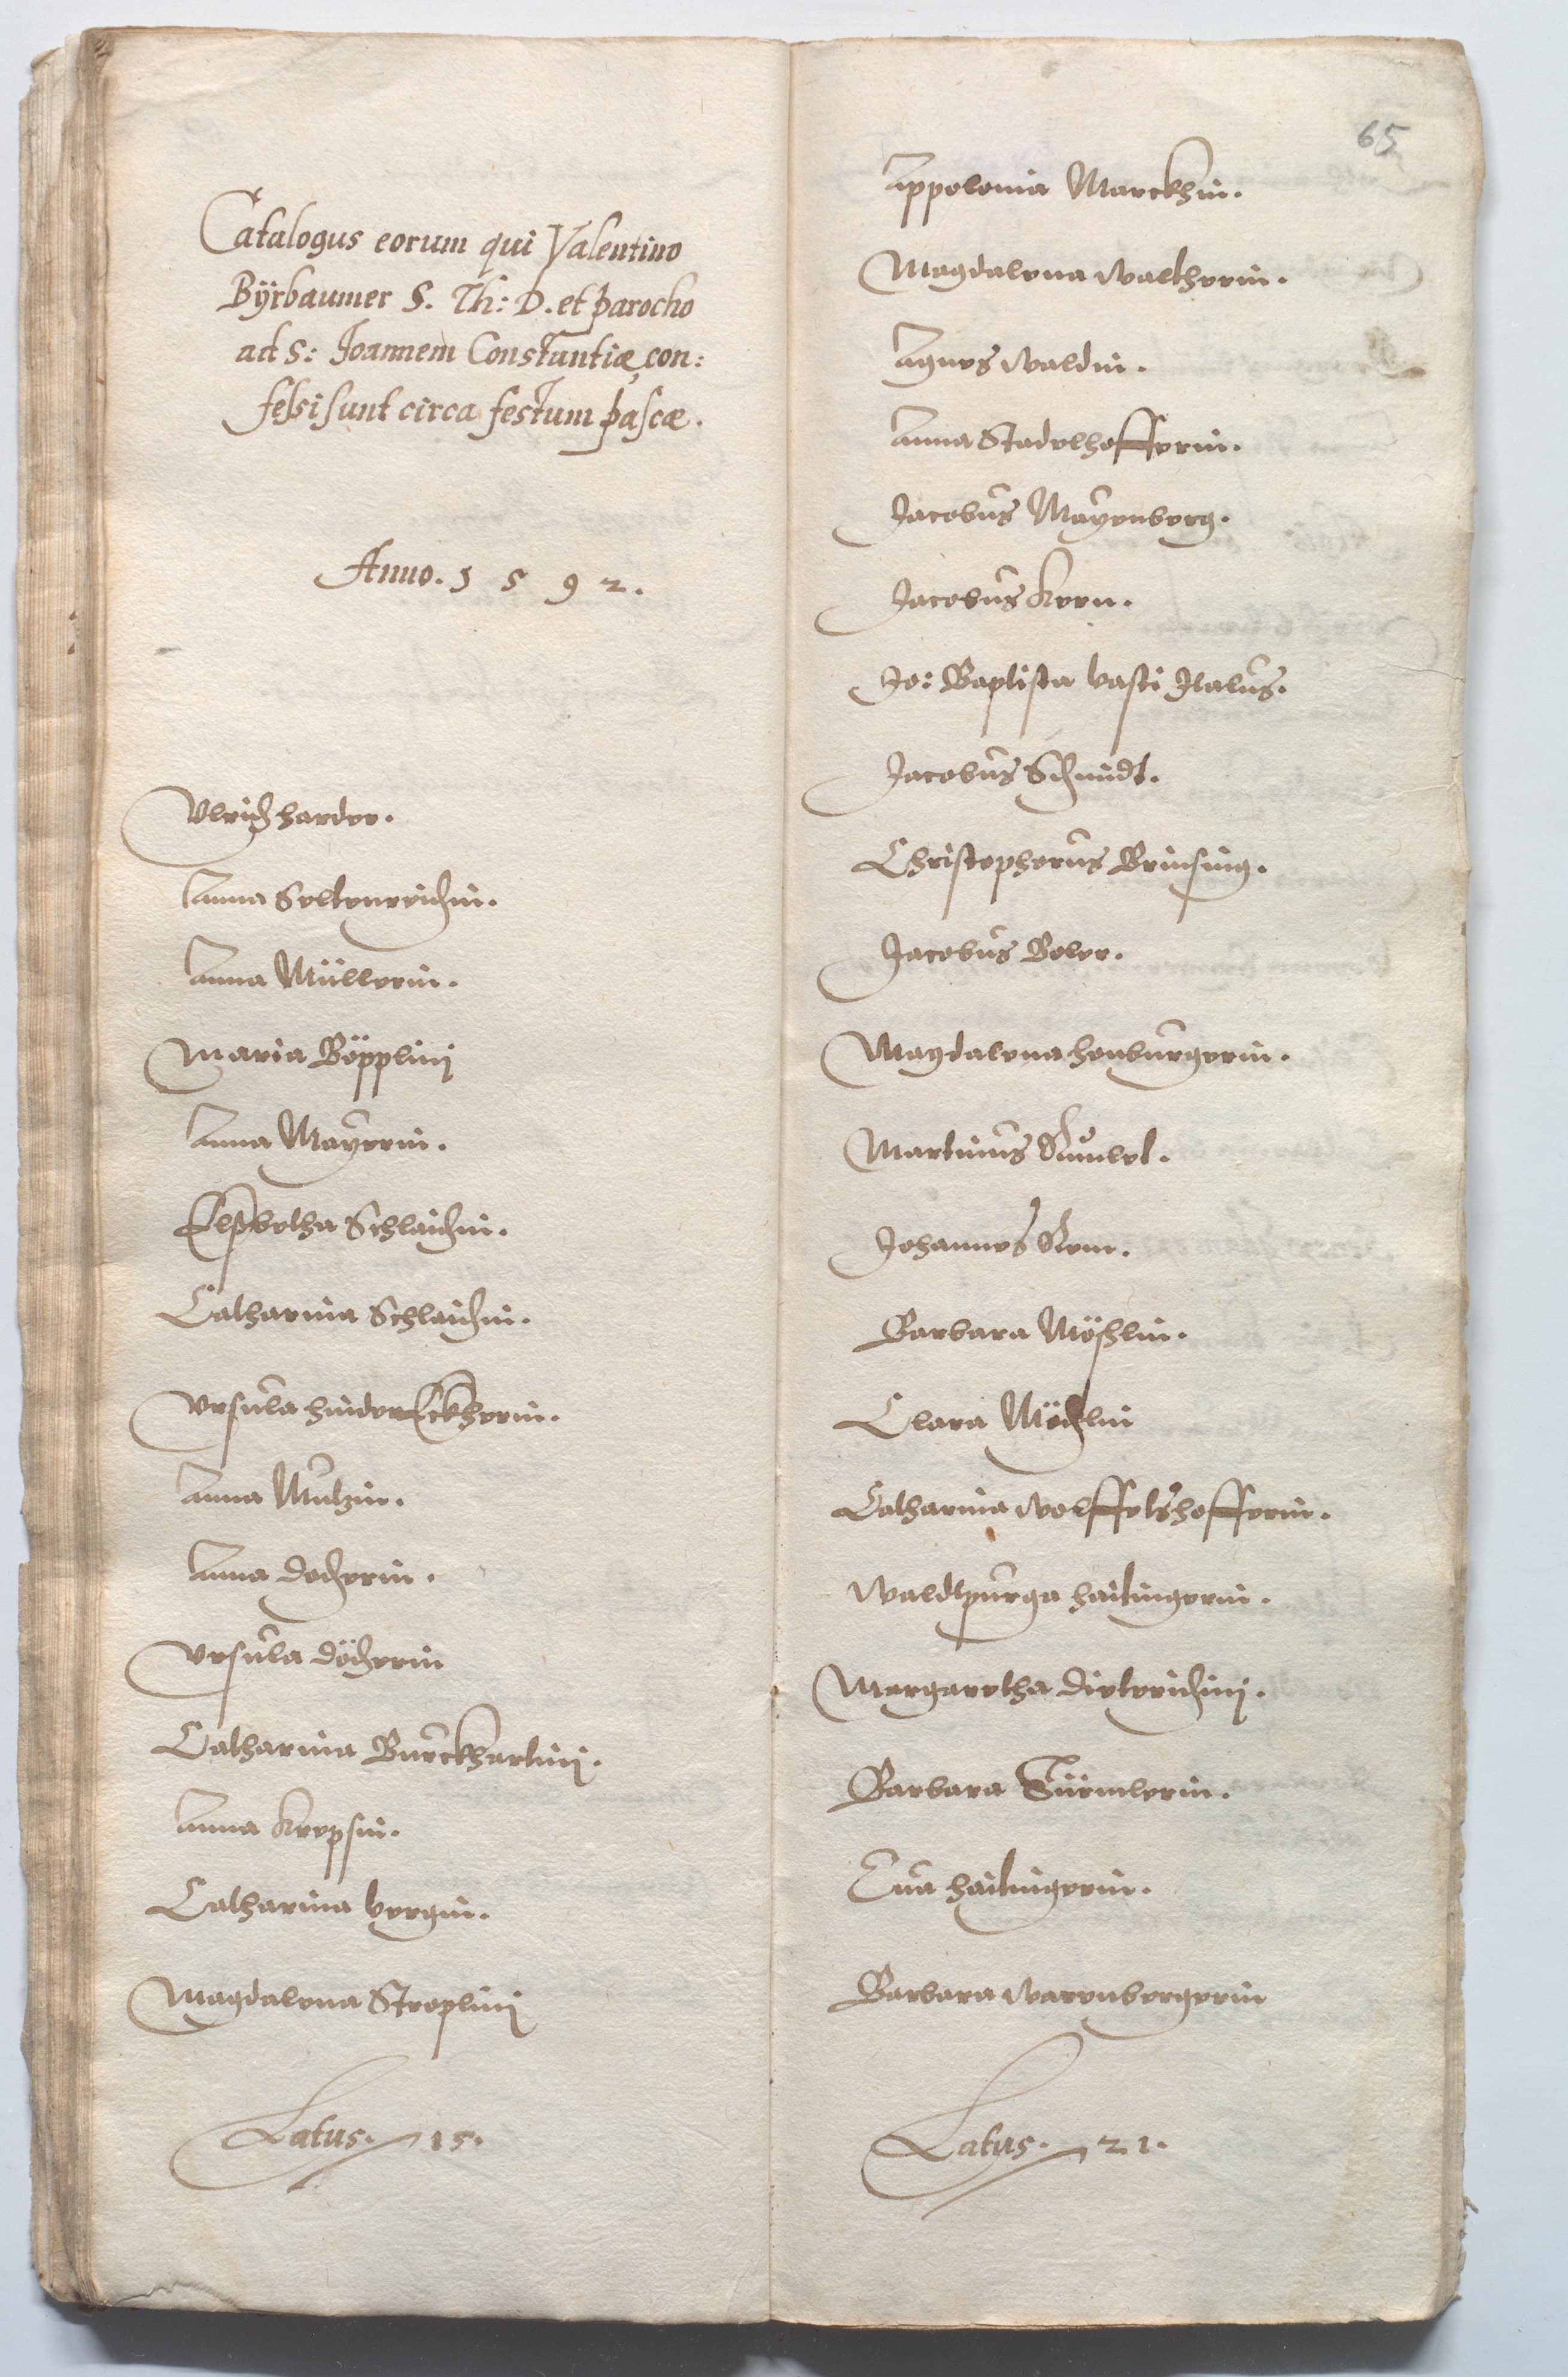 Catalogus eorum qui Valentino
Bÿrbaumer S. Th: D. et parocho
ad S: Joannem Constantiæ con:
fessi sunt circa festum pascæ.
Anno. 1 5 9 2.
Vlrich harder.
Anna Seltenreichin.
Anna Müllerin.
Maria Böpplini
Anna Mayerin.
Elsbetha Schlaichin.
Catharina Schlaichin.
Vrsula hinderEckherin.
Anna Mutzin.
Anna Docherin.
Vrsula Döcherin
Catharina Burckhartini.
Anna Krepsin.
Catharina vergin.
Magdalena Streplini
Latus. 15.
65
Appolonia Marckhin.
Magdalena Waltherin.
Agnes Waldin.
Anna Stadelhofferin.
Jacobus Mayenberg.
Jacobus Kern.
Jo: Baptista vasti Italus.
Jacobus Schmidt.
Christopherus Brinsing.
Jacobus Boler.
Magdalena honburgerin.
Martinus
Johannes Rem.
Barbara Möhlin.
Clara Möchlin
Catharina Wolffeltshofferin.
Waldtpurga hailingerin.
Margaretha Dieterichini.
Barbara Türmlerin.
Eua hailingerin.
Barbara Warenbergerin
Latus. 21.